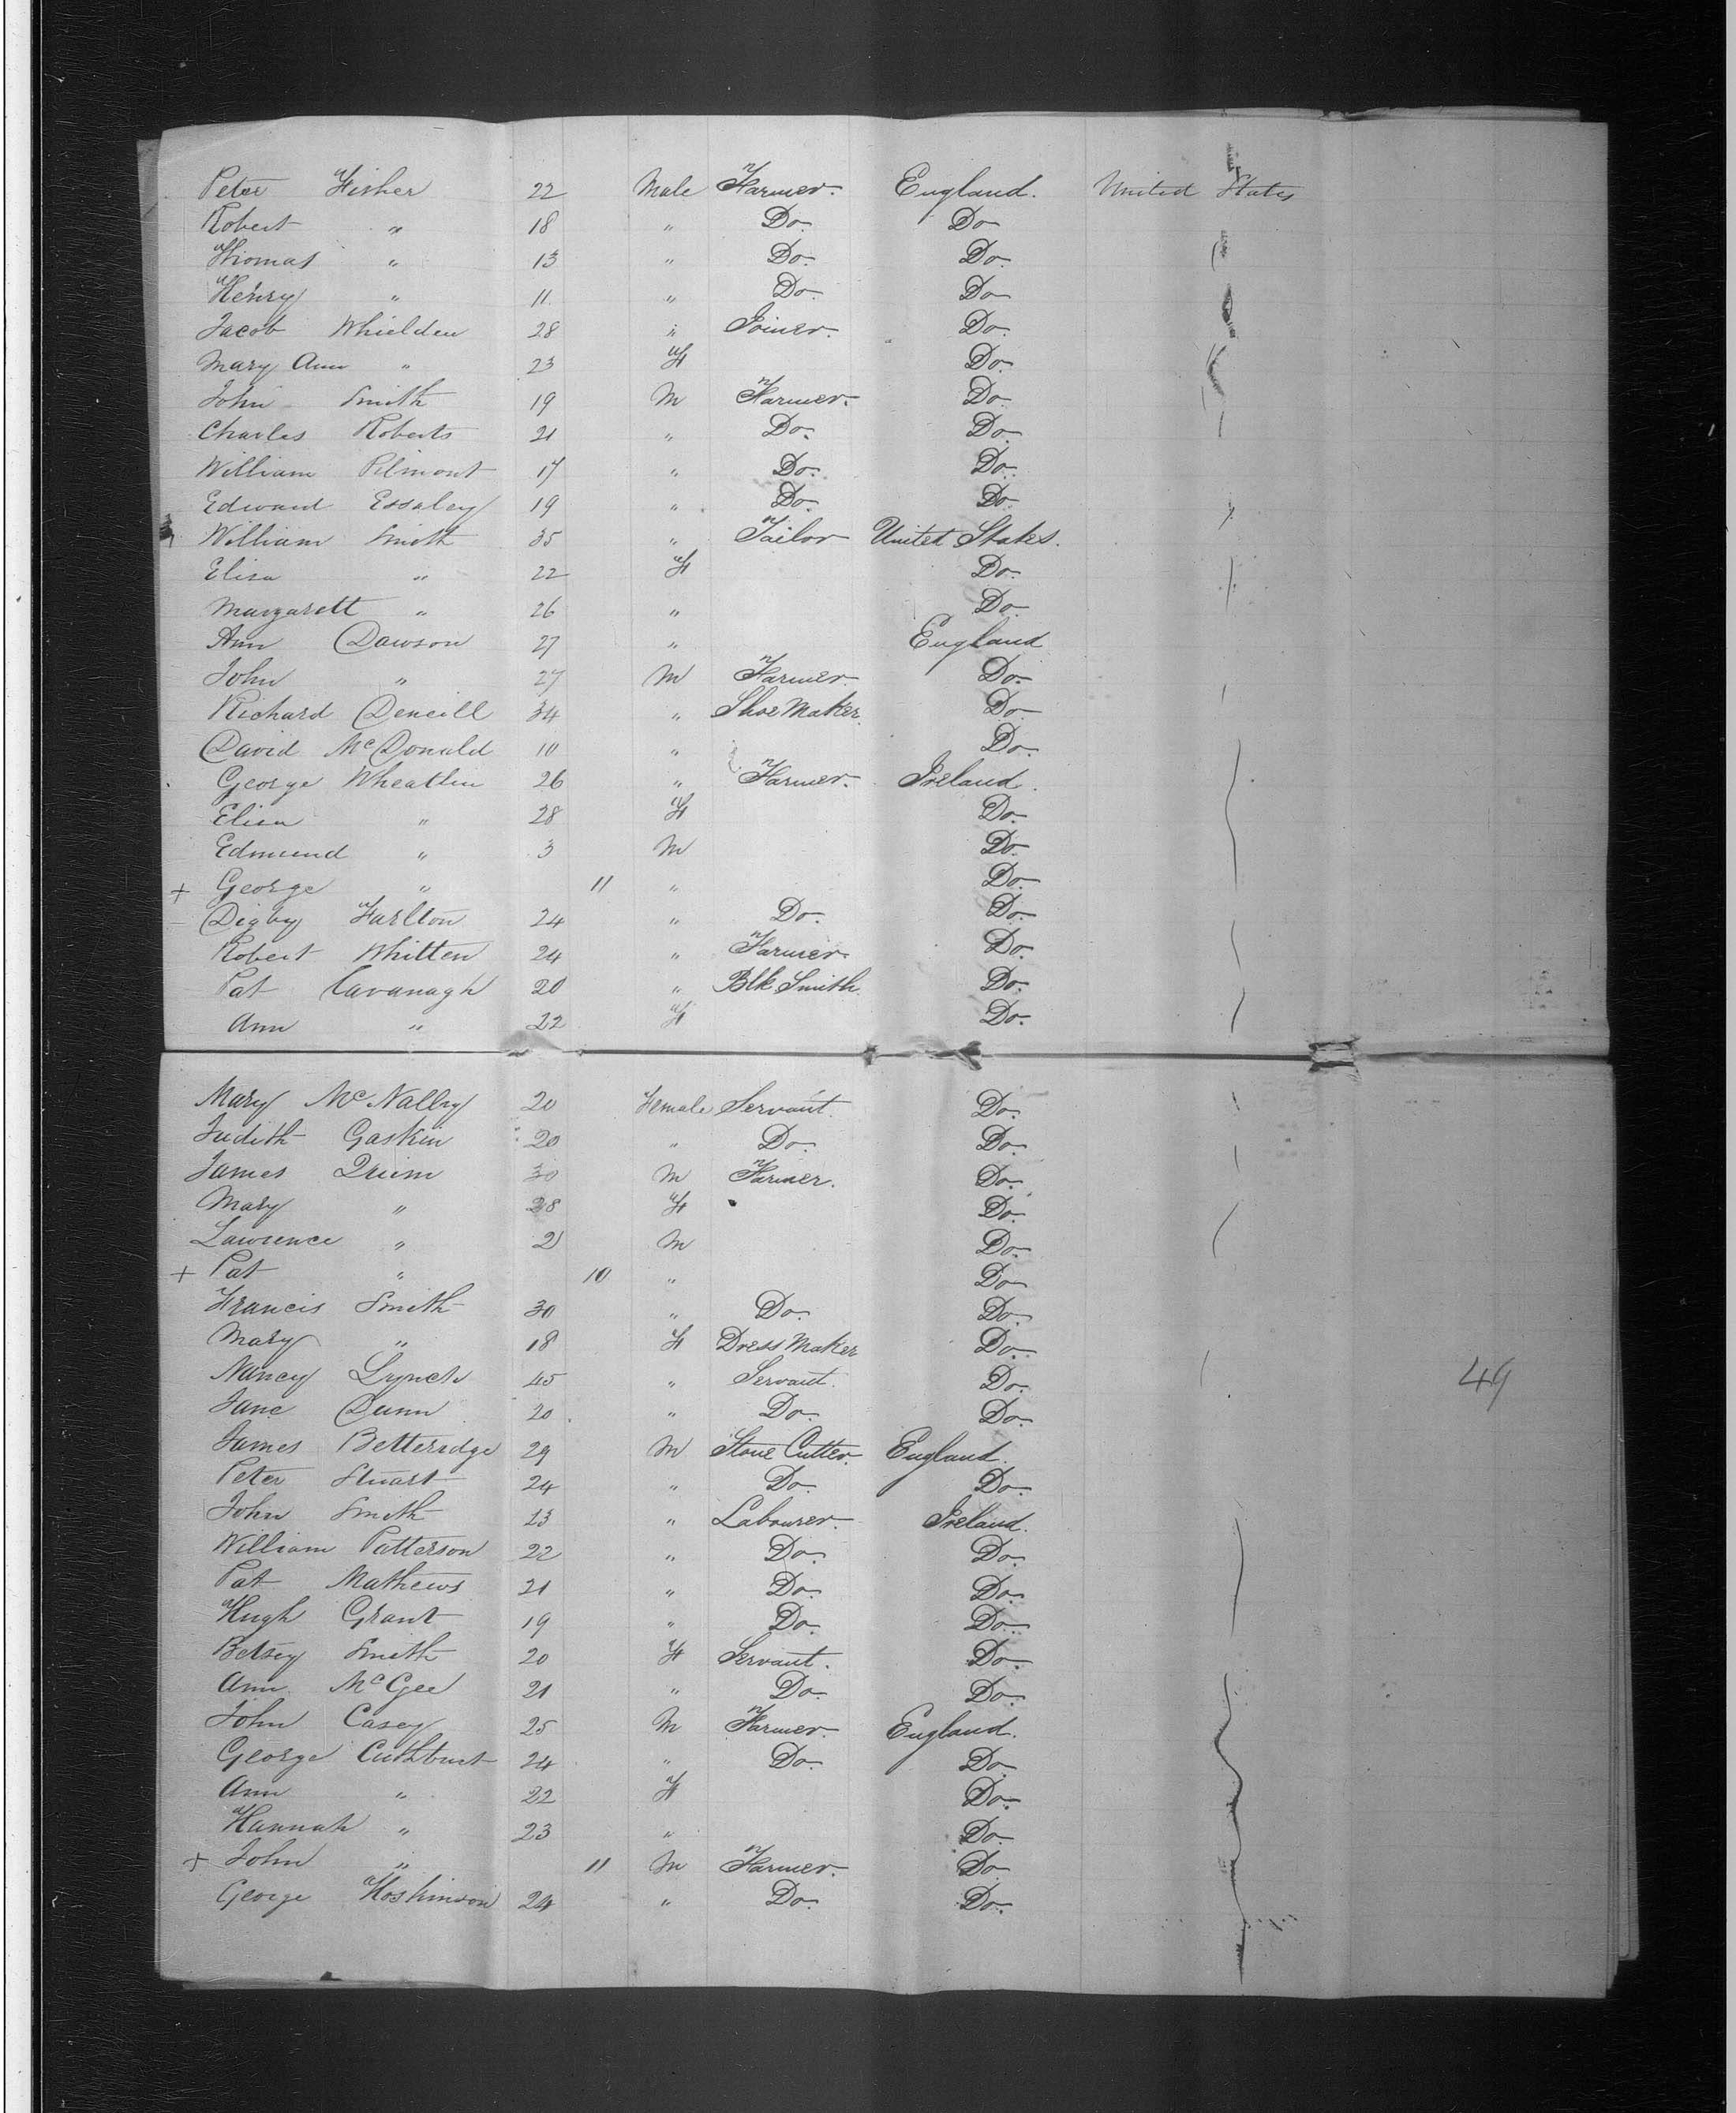 Peter Fisher 22 Male Farmer. England. United States
Robert " 18 " Do. Do
Thomas " 13 " Do. Do.
Henry " 11 " Do. Do
Jacob Whielden 28 " Joiner. Do.
Mary Ann " 23 F Do.
John Smith 19 M Farmer. Do.
Charles Roberts 21 " Do. Do.
William Pilmont 17 " Do. Do.
Edward Essaley 19 " Do. Do.
William Smith 35 " Tailor United States.
Eliza " 22 F Do.
Margarett " 26 " Do.
Ann Dawson 27 " England
John " 27 M Farmer. Do.
Richard Deneill 34 " Shoe Maker. Do
David McDonald 10 " Do.
George Wheatlin 26 " Farmer. Ireland.
Eliza " 28 F Do.
Edmund " 3 M Do.
+ George " 11 " Do.
Digby Farlton 24 " Do. Do.
Robert Whitten 24 " Farmer. Do.
Pat Cavanagh 20 " Blk Smith. Do.
Ann " 22 F Do.
Mary McNally 20 Female Servant. Do.
Judith Gaskin 20 " Do. Do.
James Quinn 30 M Farmer. Do.
Mary " 28 F Do.
Lawrence " 2 M Do.
+ Pat " 10 " Do
Francis Smith 30 " Do. Do.
Mary " 18 F Dress Maker Do.
Nancy Lynch 45 " Servant. Do.
49
Jane Dunn 20 " Do. Do.
James Betteridge 29 M Stone Cutter. England.
Peter Stuart 24 " Do. Do.
John Smith 23 " Labourer. Ireland.
William Patterson 22 " Do. Do.
Pat Mathews 21 " Do. Do.
Hugh Grant 19 " Do. Do.
Betsey Smith 20 F Servant. Do.
Ann McGee 21 " Do. Do.
John Casey 25 M Farmer. England.
George Cuthburt 24 " Do. Do.
Ann " 22 F Do.
Hannah " 23 " Do.
+ John " 11 M Farmer. Do
George Hoskinson 24 " Do. Do.